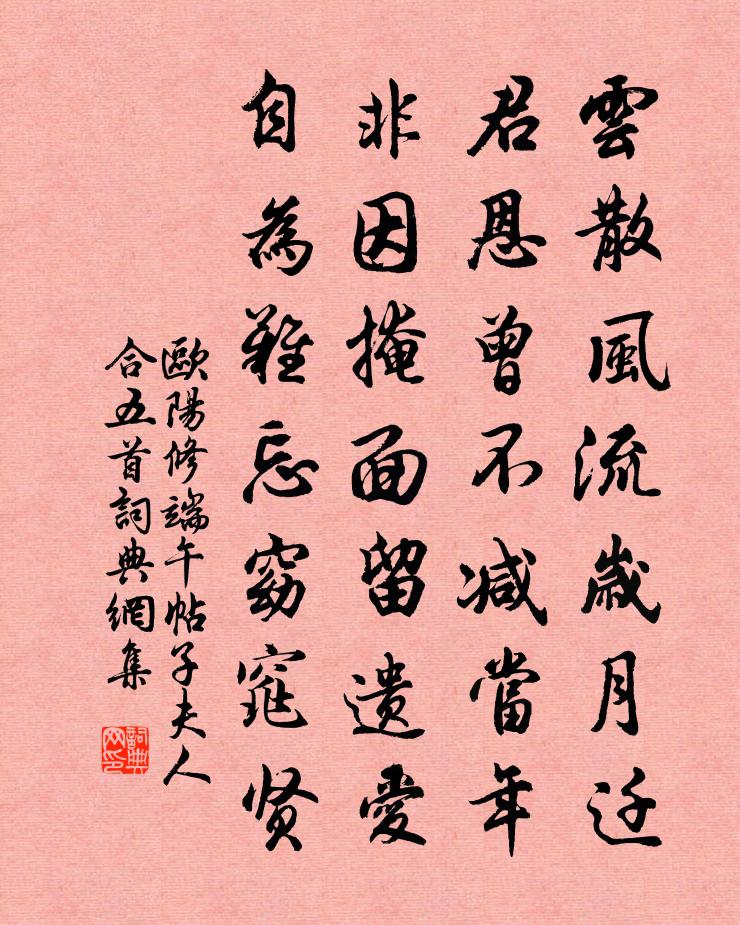 雲散風流歲月迁
君恩曾不减當年
非因掩面留遗愛
自為難忘窈窕贤
歐陽修端午帖子夫人
合五首詞典網集
詞典网印